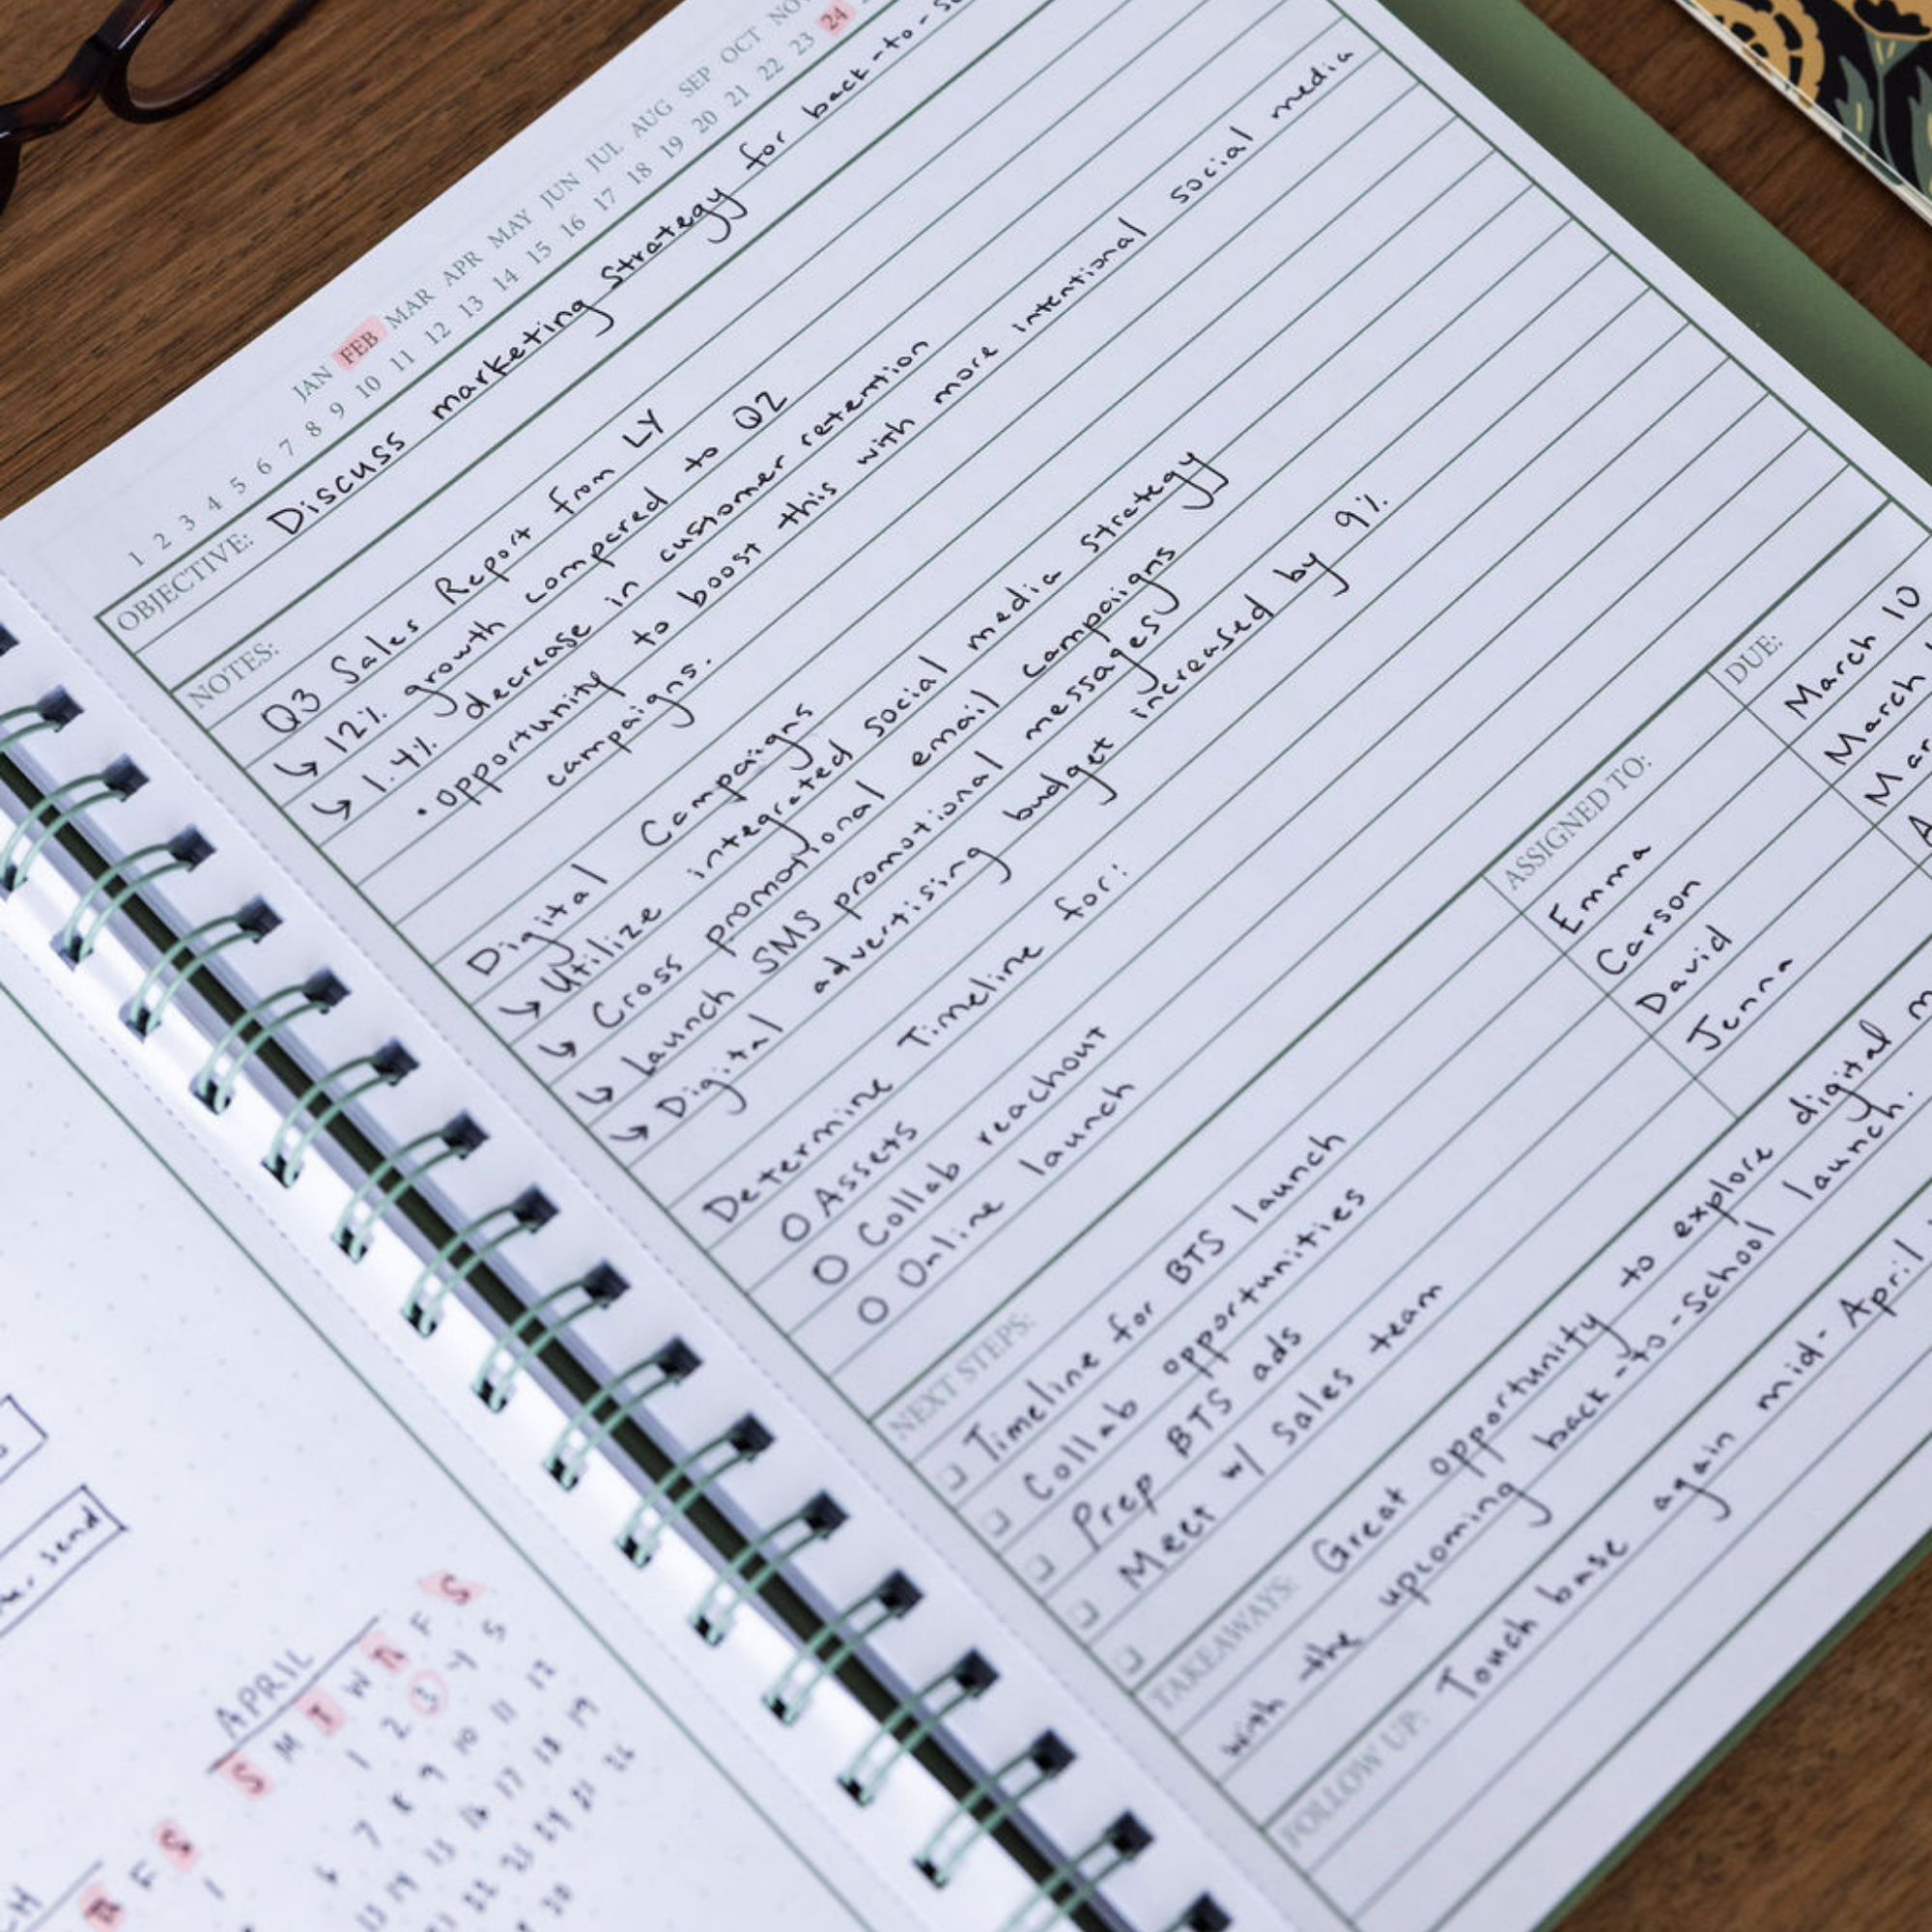 JAN FEB MAR APR MAY JUN JUL AUG SEP OCT
1 2 3 4 5 6 7 8 9 10 11 12 13 14 15 16 17 18 19 20 21 22 23 24
OBJECTIVE: Discuss marketing strategy for back-to-
NOTES:
Q3 Sales Report from LY
↳ 12% growth compared to Q2
↳ 1.4% decrease in customer retention
• opportunity to boost this with more intentional social media
campaigns.
Digital Campaigns
↳ Utilize integrated social media strategy
↳ Cross promotional email campaigns
↳ Launch SMS promotional messages
↳ Digital advertising budget increased by 9%
Determine Timeline for:
O Assets
O Collab reachout
O Online launch
NEXT STEPS: ASSIGNED TO: DUE:
Timeline for BTS launch Emma March 10
Collab opportunities Carson March
Prep BTS ads David
Meet w/ Sales team Jenna
TAKEAWAYS: Great opportunity to explore digital
with the upcoming back-to-School launch.
FOLLOW UP: Touch base again mid-April
send
APRIL
S M T W R F S
1 2 3 4 5
6 7 8 9 10 11 12
13 14 15 16 17 18 19
22 23 24 25 26
30
R F S
1